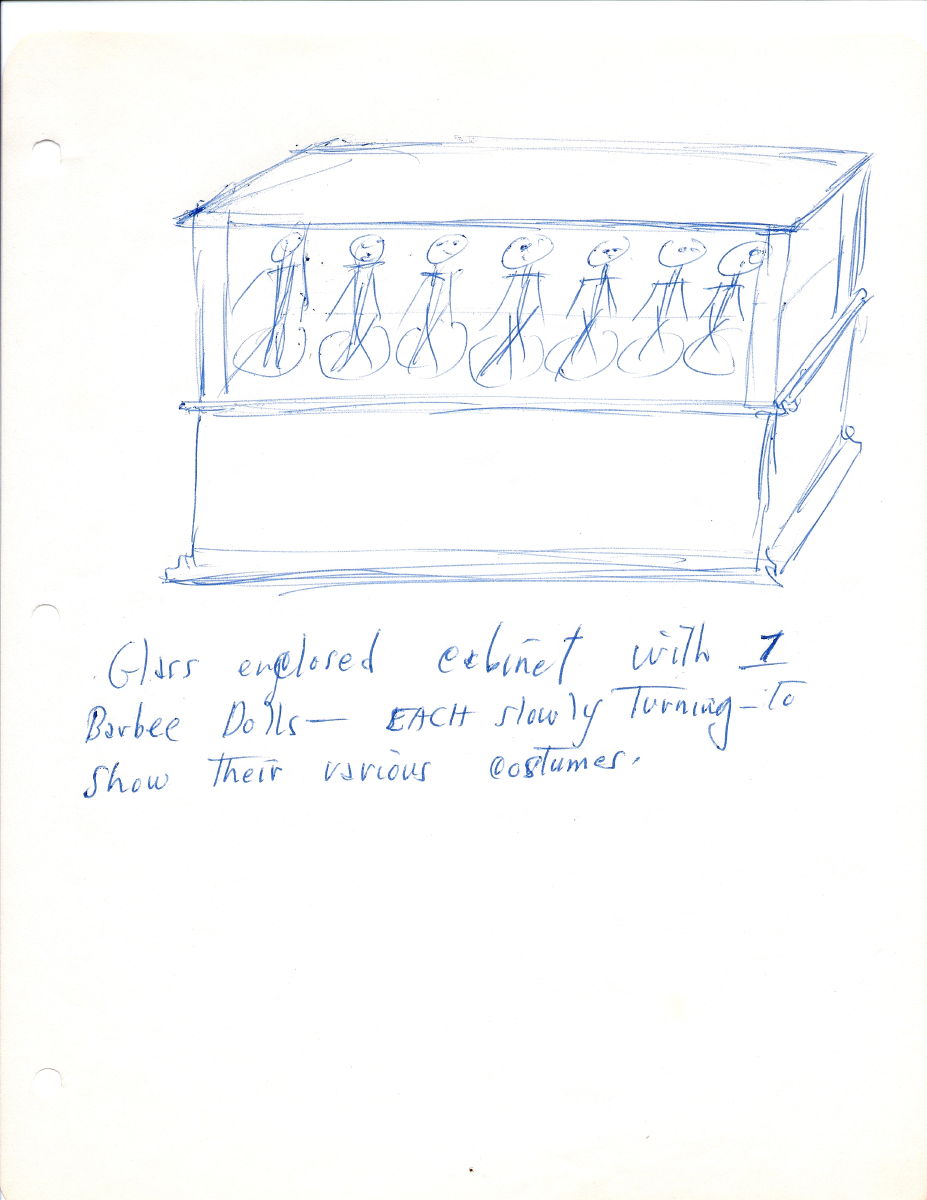 Glass enclosed cabinet with 7
Barbee Dolls— EACH slowly Turning—To
show Their various costumes.